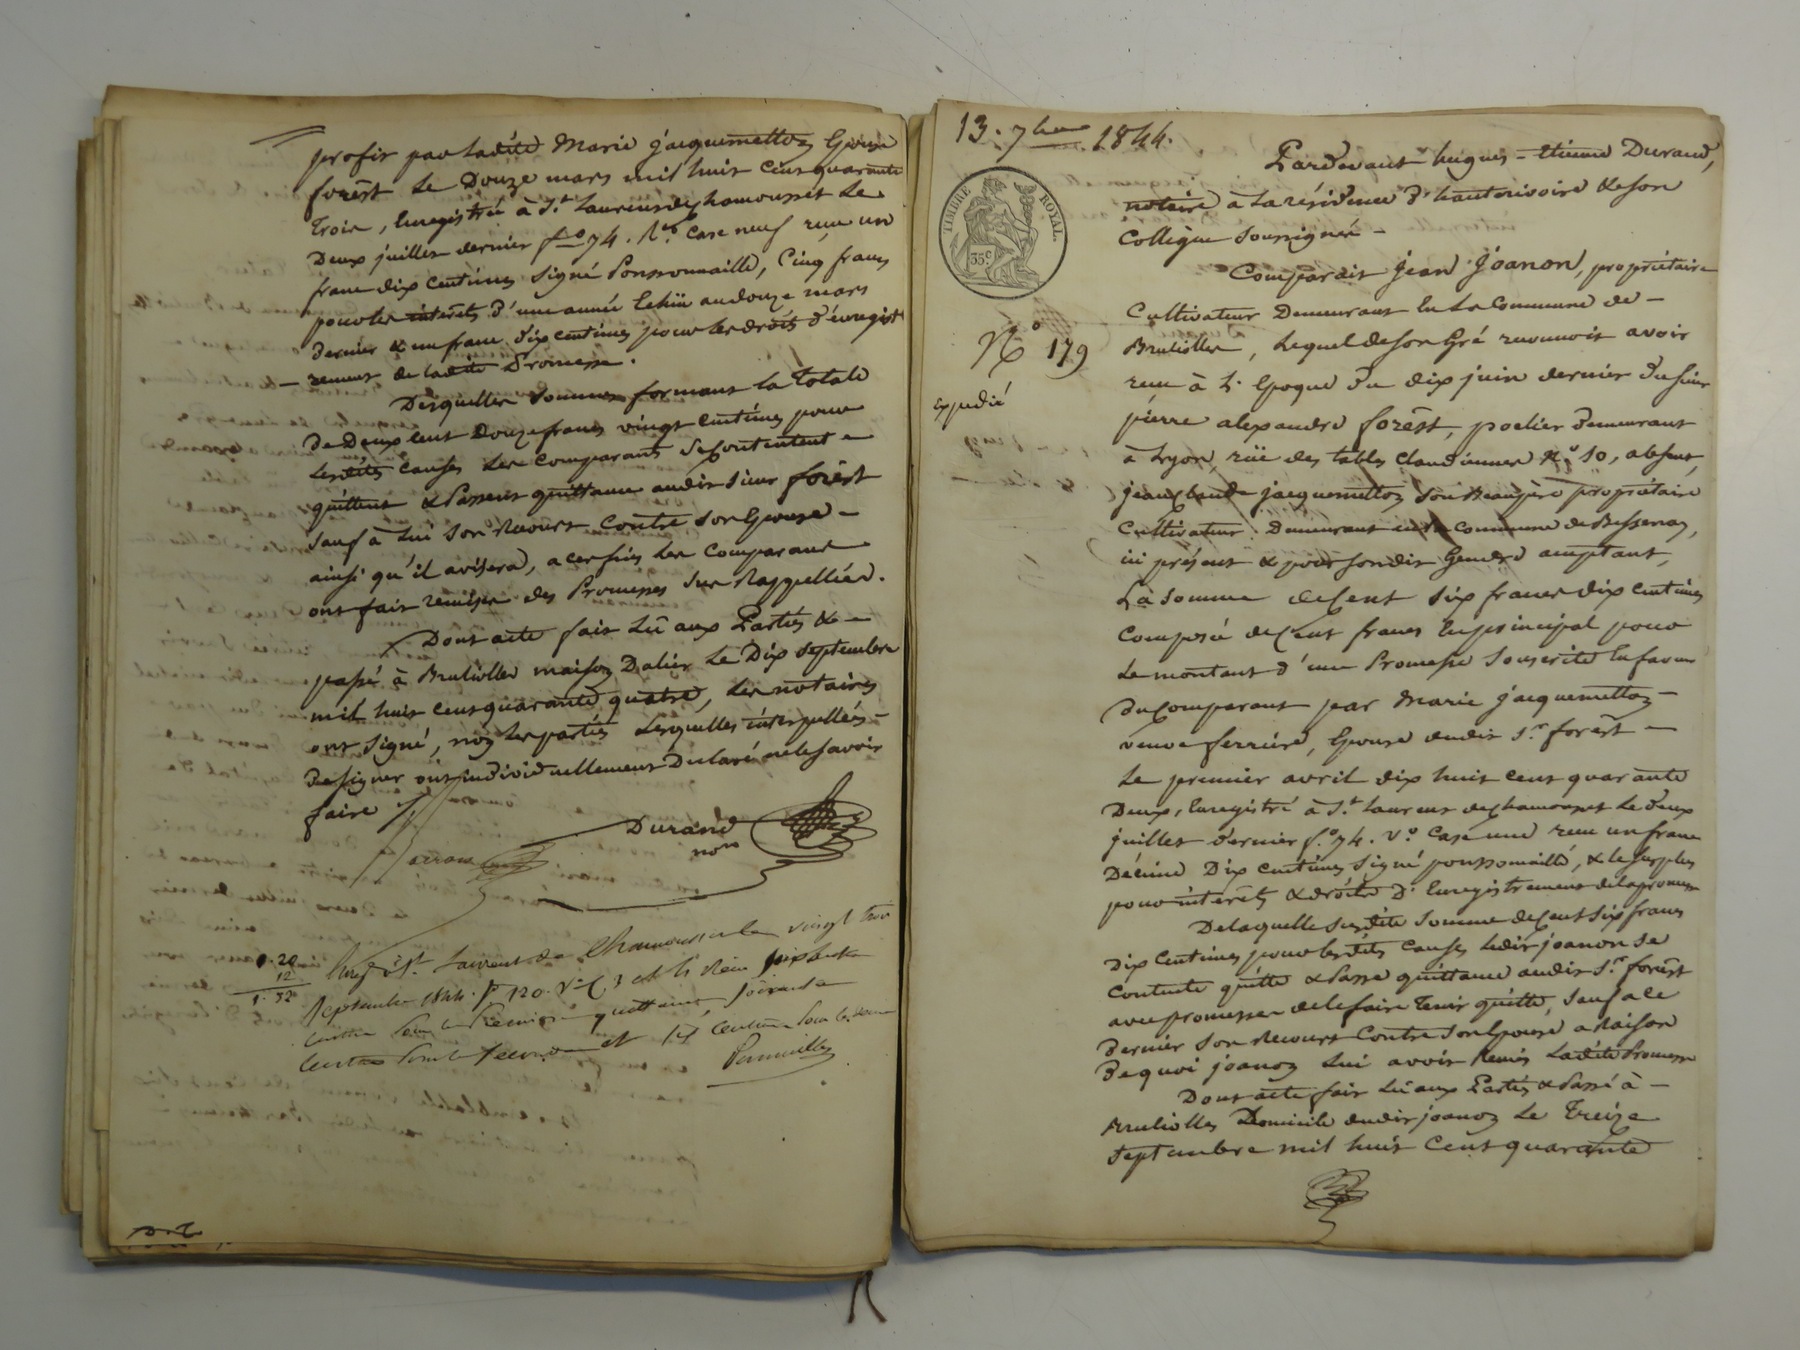 profit par Ladite Marie jacquemetton Epouse
forêst Le Douze mars mil huit cent quarante
Trois, Enregistrée à St. Laurent de chamousset Le
Deux juillet dernier f° 74. R° Case neuf reçu un
franc dix centimes signé Ponssonnaille, Cinq francs
pour les intérêts d'une année Echüe au douze mars
dernier & un franc dix centimes pour les droits d'énregist
rement de ladite Promesse.
Desquelles sommes formant la totale
de Deux Cent Douze francs vingt centimes pour
lesdites causes Les Comparants se Contentent
quittent & Passent quittance audit sieur forêst
sauf à Lui son Recours Contre son Epouse
ainsi qu'il avisera, a ces fins Les Comparants
ont fait remise des Promesses sus Rappellées.
Dont acte fait Lû aux Parties &
passé à Brullioles maison Dalier Le Dix septembre
mil huit cent quarante quatre, Les notaires
ont signé, non Les parties Lesquelles interpellées
de signer ont individuellement Déclaré ne le savoir
faire
Durand
nore
1. 20
12
1. 32
Enreg. à St. Laurent de Chamousset le vingt trois
septembre 1844. f° 120. V° C 3 et 4 Reçu soixante
centimes pour la Première quittance, soixante
centimes pour la seconde et centimes pour le décime
13. 7bre 1844.
TIMBRE ROYAL.
35c
N° 179
Expedié
Pardevant hugues-Etienne Durand,
notaire à La résidence d'hauterivoire & son
Collègue soussignés
Comparait jean joanon, propriétaire
Cultivateur Demeurant En La Commune de
Brullioles, Lequel de son Gré reconnoit avoir
reçu à L'Epoque du dix juin dernier du sieur
pierre alexandre forêst, poelier demeurant
à Lyon, rüe des tables Claudiennes N° 10, absent,
jean Claude jacquemetton son Beaupère propriétaire
Cultivateur Demeurant en la commune de Bessenay,
ici présent & pour son dit Gendre acceptant,
La somme de Cent six francs dix centimes
Composée de Cent francs En principal pour
Le montant d'une Promesse souscrite En faveur
du Comparant par Marie jacquemetton
veuve ferrière, Epouse dudit Sr. forêst
Le premier avril dix huit cent quarante
Deux, Enregistré à St. Laurent de chamousset Le deux
juillet dernier f° 74. V° Case une reçu un franc
Décime Dix centimes signé ponssonnaille, & le surplus
pour intérêts & droits d'Enregistrement de la promesse
De laquelle susdite somme de Cent Six francs
Dix Centimes pour lesdites causes Ledit joanon se
Contente quitte & Passe quittance audit Sr. forêst
avec promesse de le faire Tenir quitte, sauf a ce
dernier son Recours Contre son Epouse a Raison
de quoi joanon Lui avoir Remis Ladite Promesse
Dont acte fait Lû aux Parties & Passé à
Brullioles Domicile dudit joanon Le Treize
septembre mil huit Cent quarante